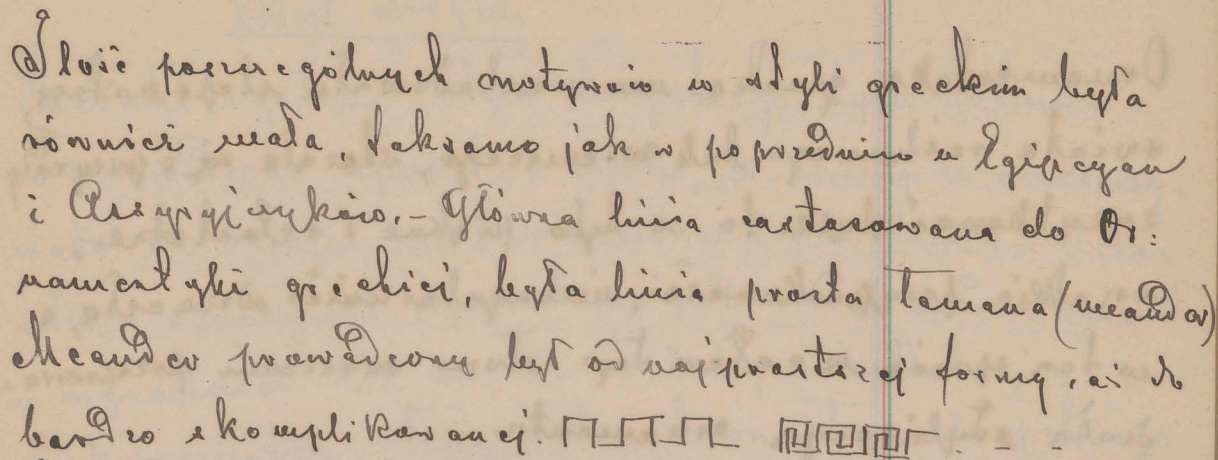 Ilość poszczególnych motywów w styli greckim była
również mała, taksamo jak w poprzednim u Egipcyan
i Assyryjczyków. – Główna linia zastosowana do Or:
namentyki greckiej, była linia prosta łamana (meander)
Meander prowadzony był od najprostszej formy, aż do
bardzo skomplikowanej.